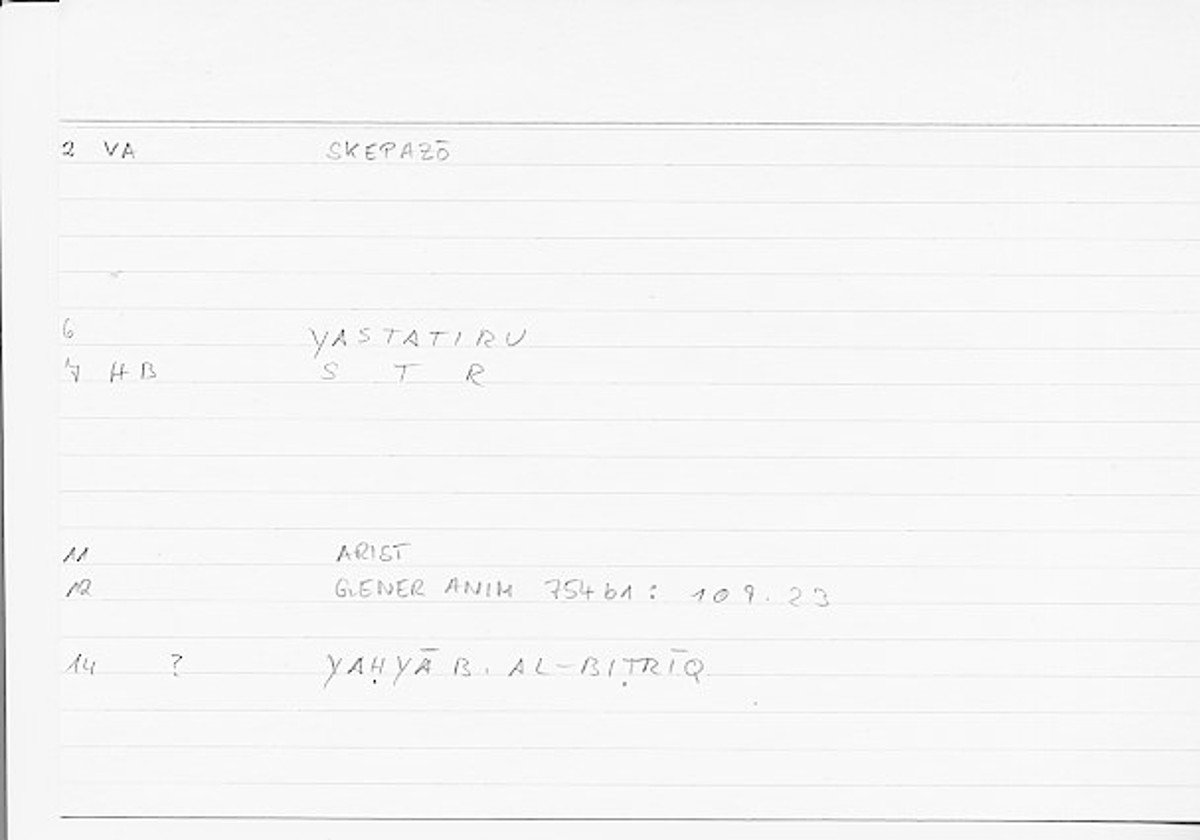 2 VA SKEPAZŌ
6 YASTATIRU
7 HB S T R
11 ARIST
12 GENER ANIM 754b1: 109.23
14 ? YAḤYĀ B. AL-BIṬRĪQ